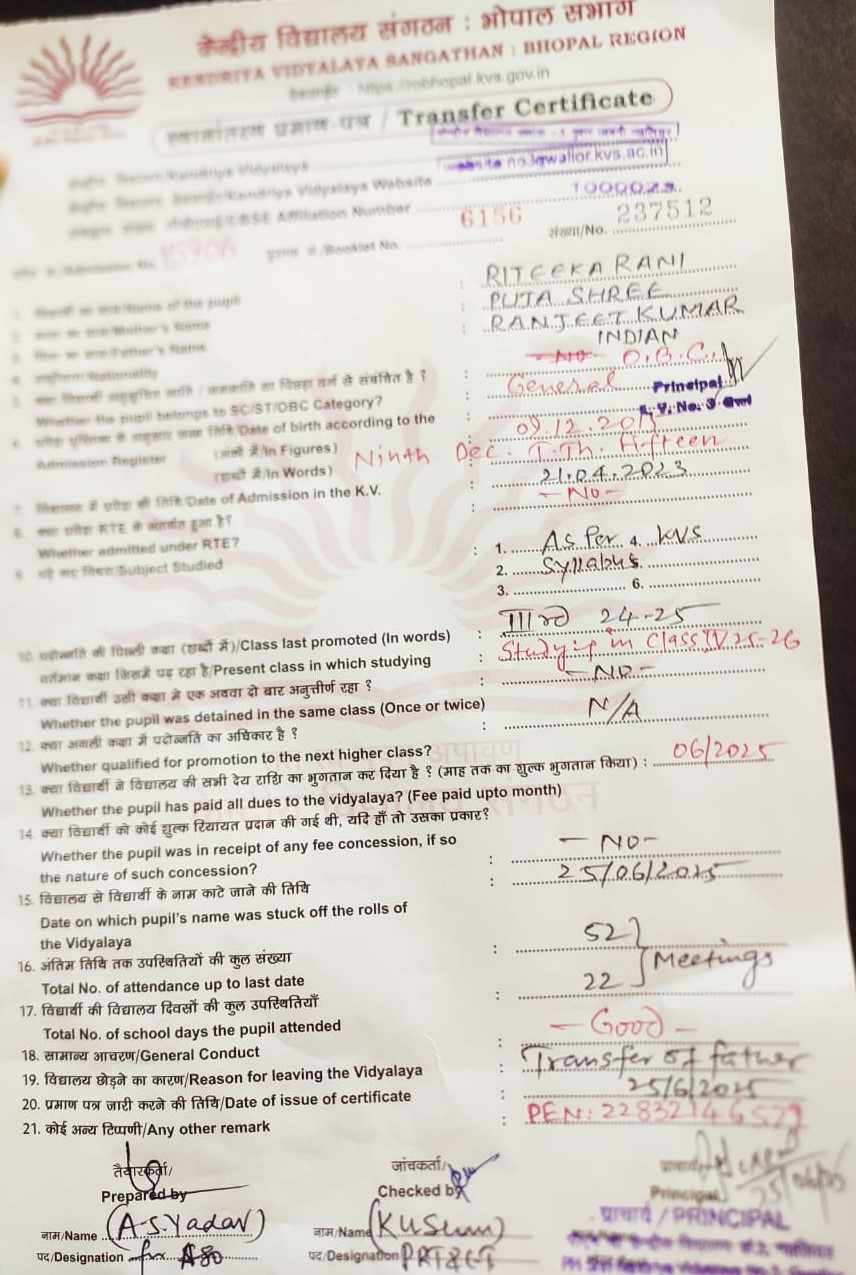 केन्द्रीय विद्यालय संगठन : भोपाल संभाग
KENDRIYA VIDYALAYA SANGATHAN : BHOPAL REGION
https://robhopal.kvs.gov.in
स्थानांतरण प्रमाण-पत्र / Transfer Certificate
Kendriya Vidyalaya
Kendriya Vidyalaya Website
CBSE Affiliation Number 1000023
Admission No. Booklet No. 6156 संख्या/No. 237512
1. Name of the pupil : RITEEKA RANI
2. Mother's Name : PUJA SHREE
3. Father's Name : RANJEET KUMAR
4. Nationality INDIAN
5. : O.B.C.
Whether the pupil belongs to SC/ST/OBC Category? : General Principal
K. V. No. 3 Gwl
6. Date of birth according to the
Admission Register (अंकों में/In Figures) : 09.12.2015
(शब्दों में/In Words) Ninth Dec. T.Th. Fifteen
7. Date of Admission in the K.V. : 21.04.2023
8. क्या प्रवेश RTE के अंतर्गत हुआ है?
Whether admitted under RTE? : - No -
9. Subject Studied : 1. As per 4. KVS
2. Syllabus 5.
3. 6.
10. पदोन्नति की पिछली कक्षा (शब्दों में)/Class last promoted (In words) : III rd 24-25
वर्तमान कक्षा जिसमें पढ़ रहा है/Present class in which studying : Studying in Class IV 25-26
11. क्या विद्यार्थी उसी कक्षा में एक अथवा दो बार अनुत्तीर्ण रहा ?
Whether the pupil was detained in the same class (Once or twice) : - NO -
12. क्या अगली कक्षा में पदोन्नति का अधिकार है ?
Whether qualified for promotion to the next higher class? : N/A
13. क्या विद्यार्थी ने विद्यालय की सभी देय राशि का भुगतान कर दिया है ? (माह तक का शुल्क भुगतान किया) : 06/2025
Whether the pupil has paid all dues to the vidyalaya? (Fee paid upto month)
14. क्या विद्यार्थी को कोई शुल्क रियायत प्रदान की गई थी, यदि हाँ तो उसका प्रकार?
Whether the pupil was in receipt of any fee concession, if so
the nature of such concession? : - NO -
15. विद्यालय से विद्यार्थी के नाम काटे जाने की तिथि : 25/06/2025
Date on which pupil's name was stuck off the rolls of
the Vidyalaya
16. अंतिम तिथि तक उपस्थितियों की कुल संख्या : 52
Total No. of attendance up to last date Meetings
17. विद्यार्थी की विद्यालय दिवसों की कुल उपस्थितियाँ : 22
Total No. of school days the pupil attended
18. सामान्य आचरण/General Conduct : - Good -
19. विद्यालय छोड़ने का कारण/Reason for leaving the Vidyalaya : Transfer of father
20. प्रमाण पत्र जारी करने की तिथि/Date of issue of certificate : 25/6/2025
21. कोई अन्य टिप्पणी/Any other remark : PEN:
तैयारकर्ता/ जांचकर्ता/
Prepared by Checked by Principal
प्राचार्य / PRINCIPAL
नाम/Name (A.S. Yadav) नाम/Name (KUSUM)
पद/Designation पद/Designation PRT